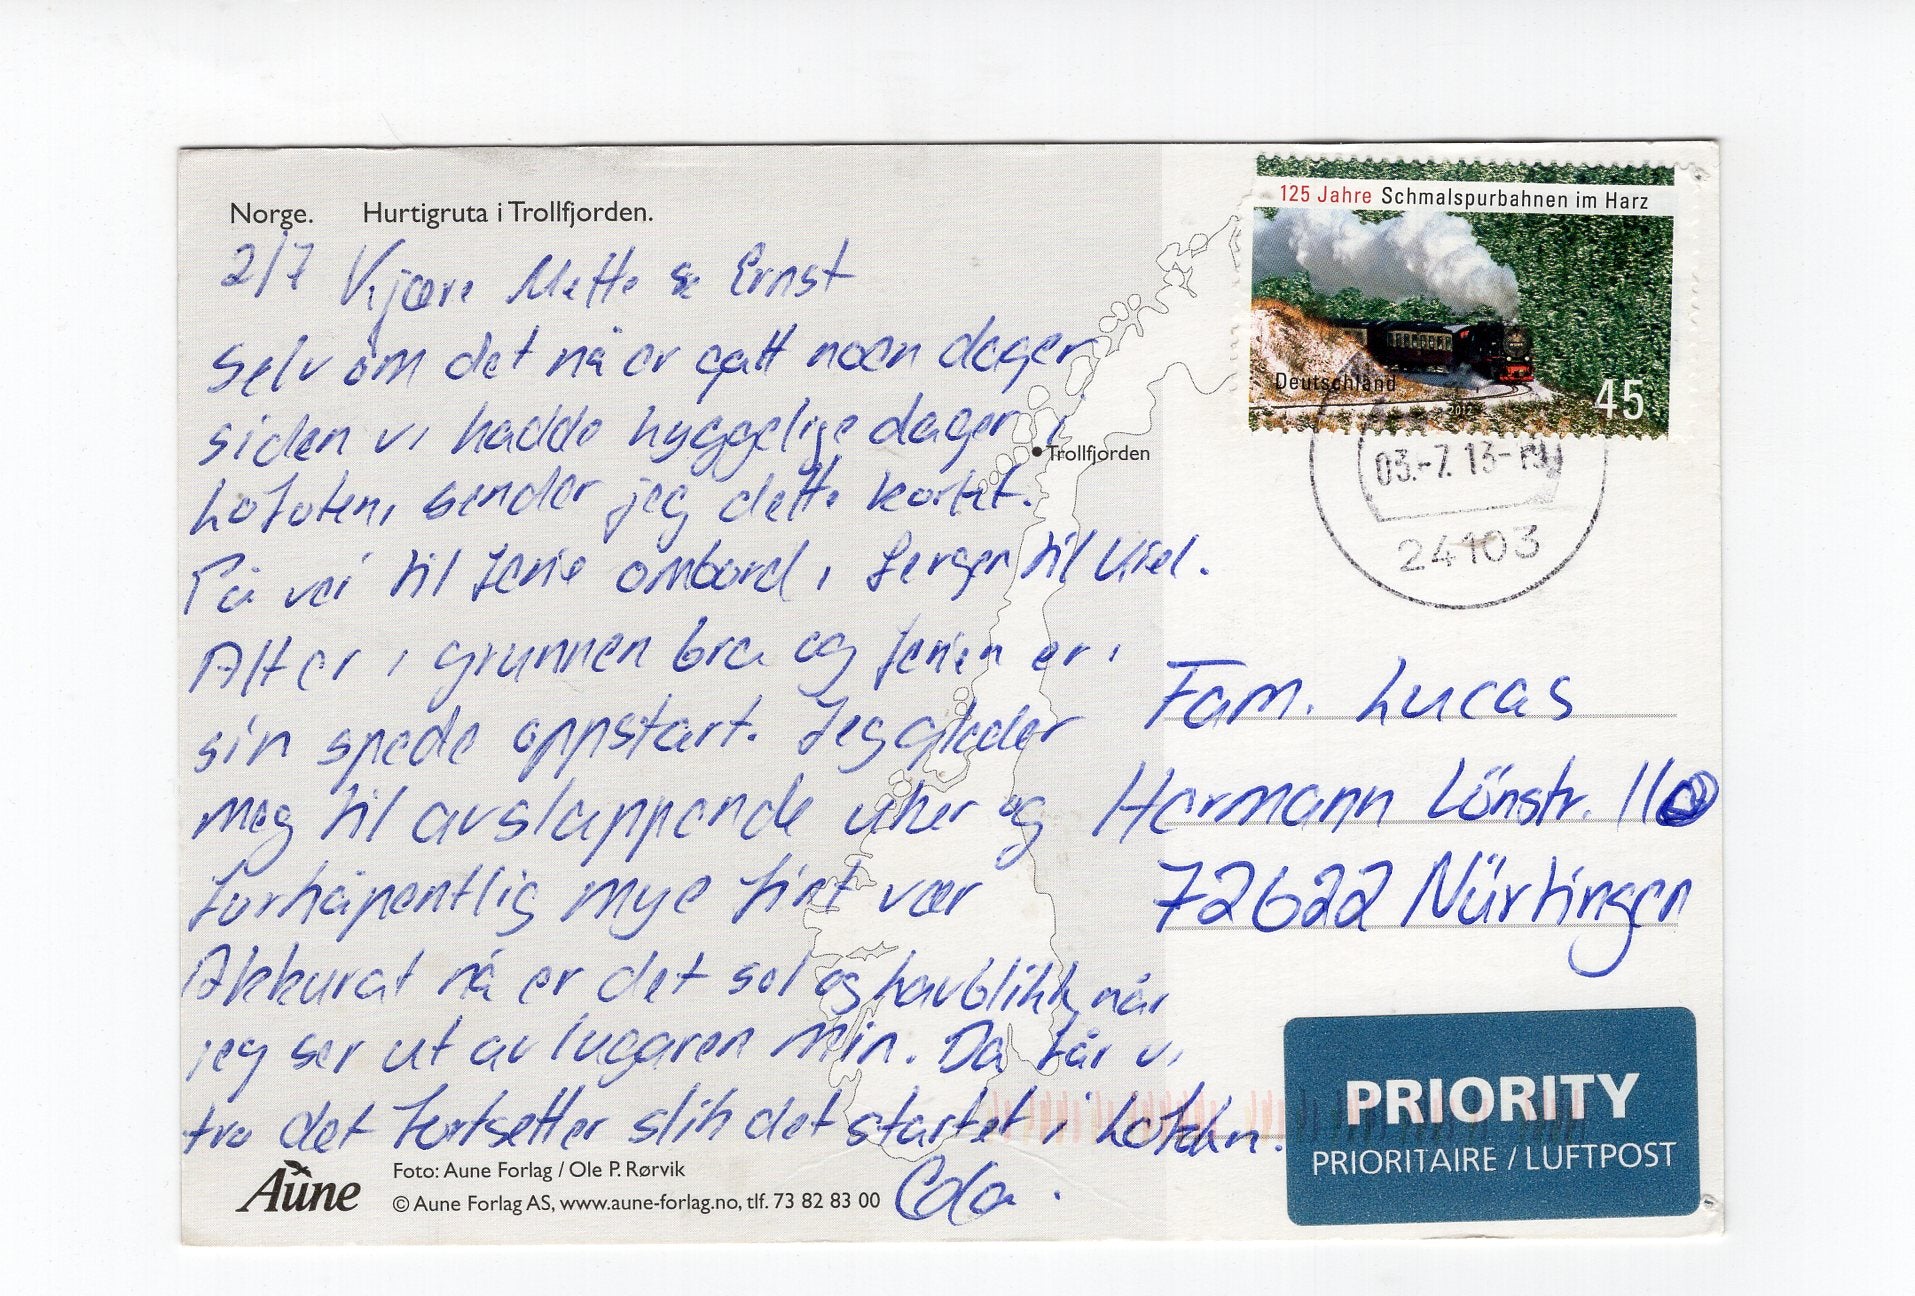 Norge. Hurtigruta i Trollfjorden.
2/7 Kjære Mette & Ernst
Selv om det nå er gått noen dager
siden vi hadde hyggelige dager i
Lofoten, sender jeg dette kortet.
På vei til ferie ombord i fergen til Kiel.
Alt er i grunnen bra og ferien er i
sin spede oppstart. Jeg gleder
meg til avslappende uker og
forhåpentlig mye fint vær
Akkurat nå er det sol og havblikk når
jeg ser ut av lugaren min. Da får vi
tro det fortsetter slik det startet i Lofoten.
Trollfjorden
Aune
Foto: Aune Forlag / Ole P. Rørvik
© Aune Forlag AS, www.aune-forlag.no, tlf. 73 82 83 00
125 Jahre Schmalspurbahnen im Harz
Deutschland
2012
45
03.-7.13-
24103
Fam. Lucas
Hermann Lönstr. 11
72622 Nürtingen
PRIORITY
PRIORITAIRE / LUFTPOST